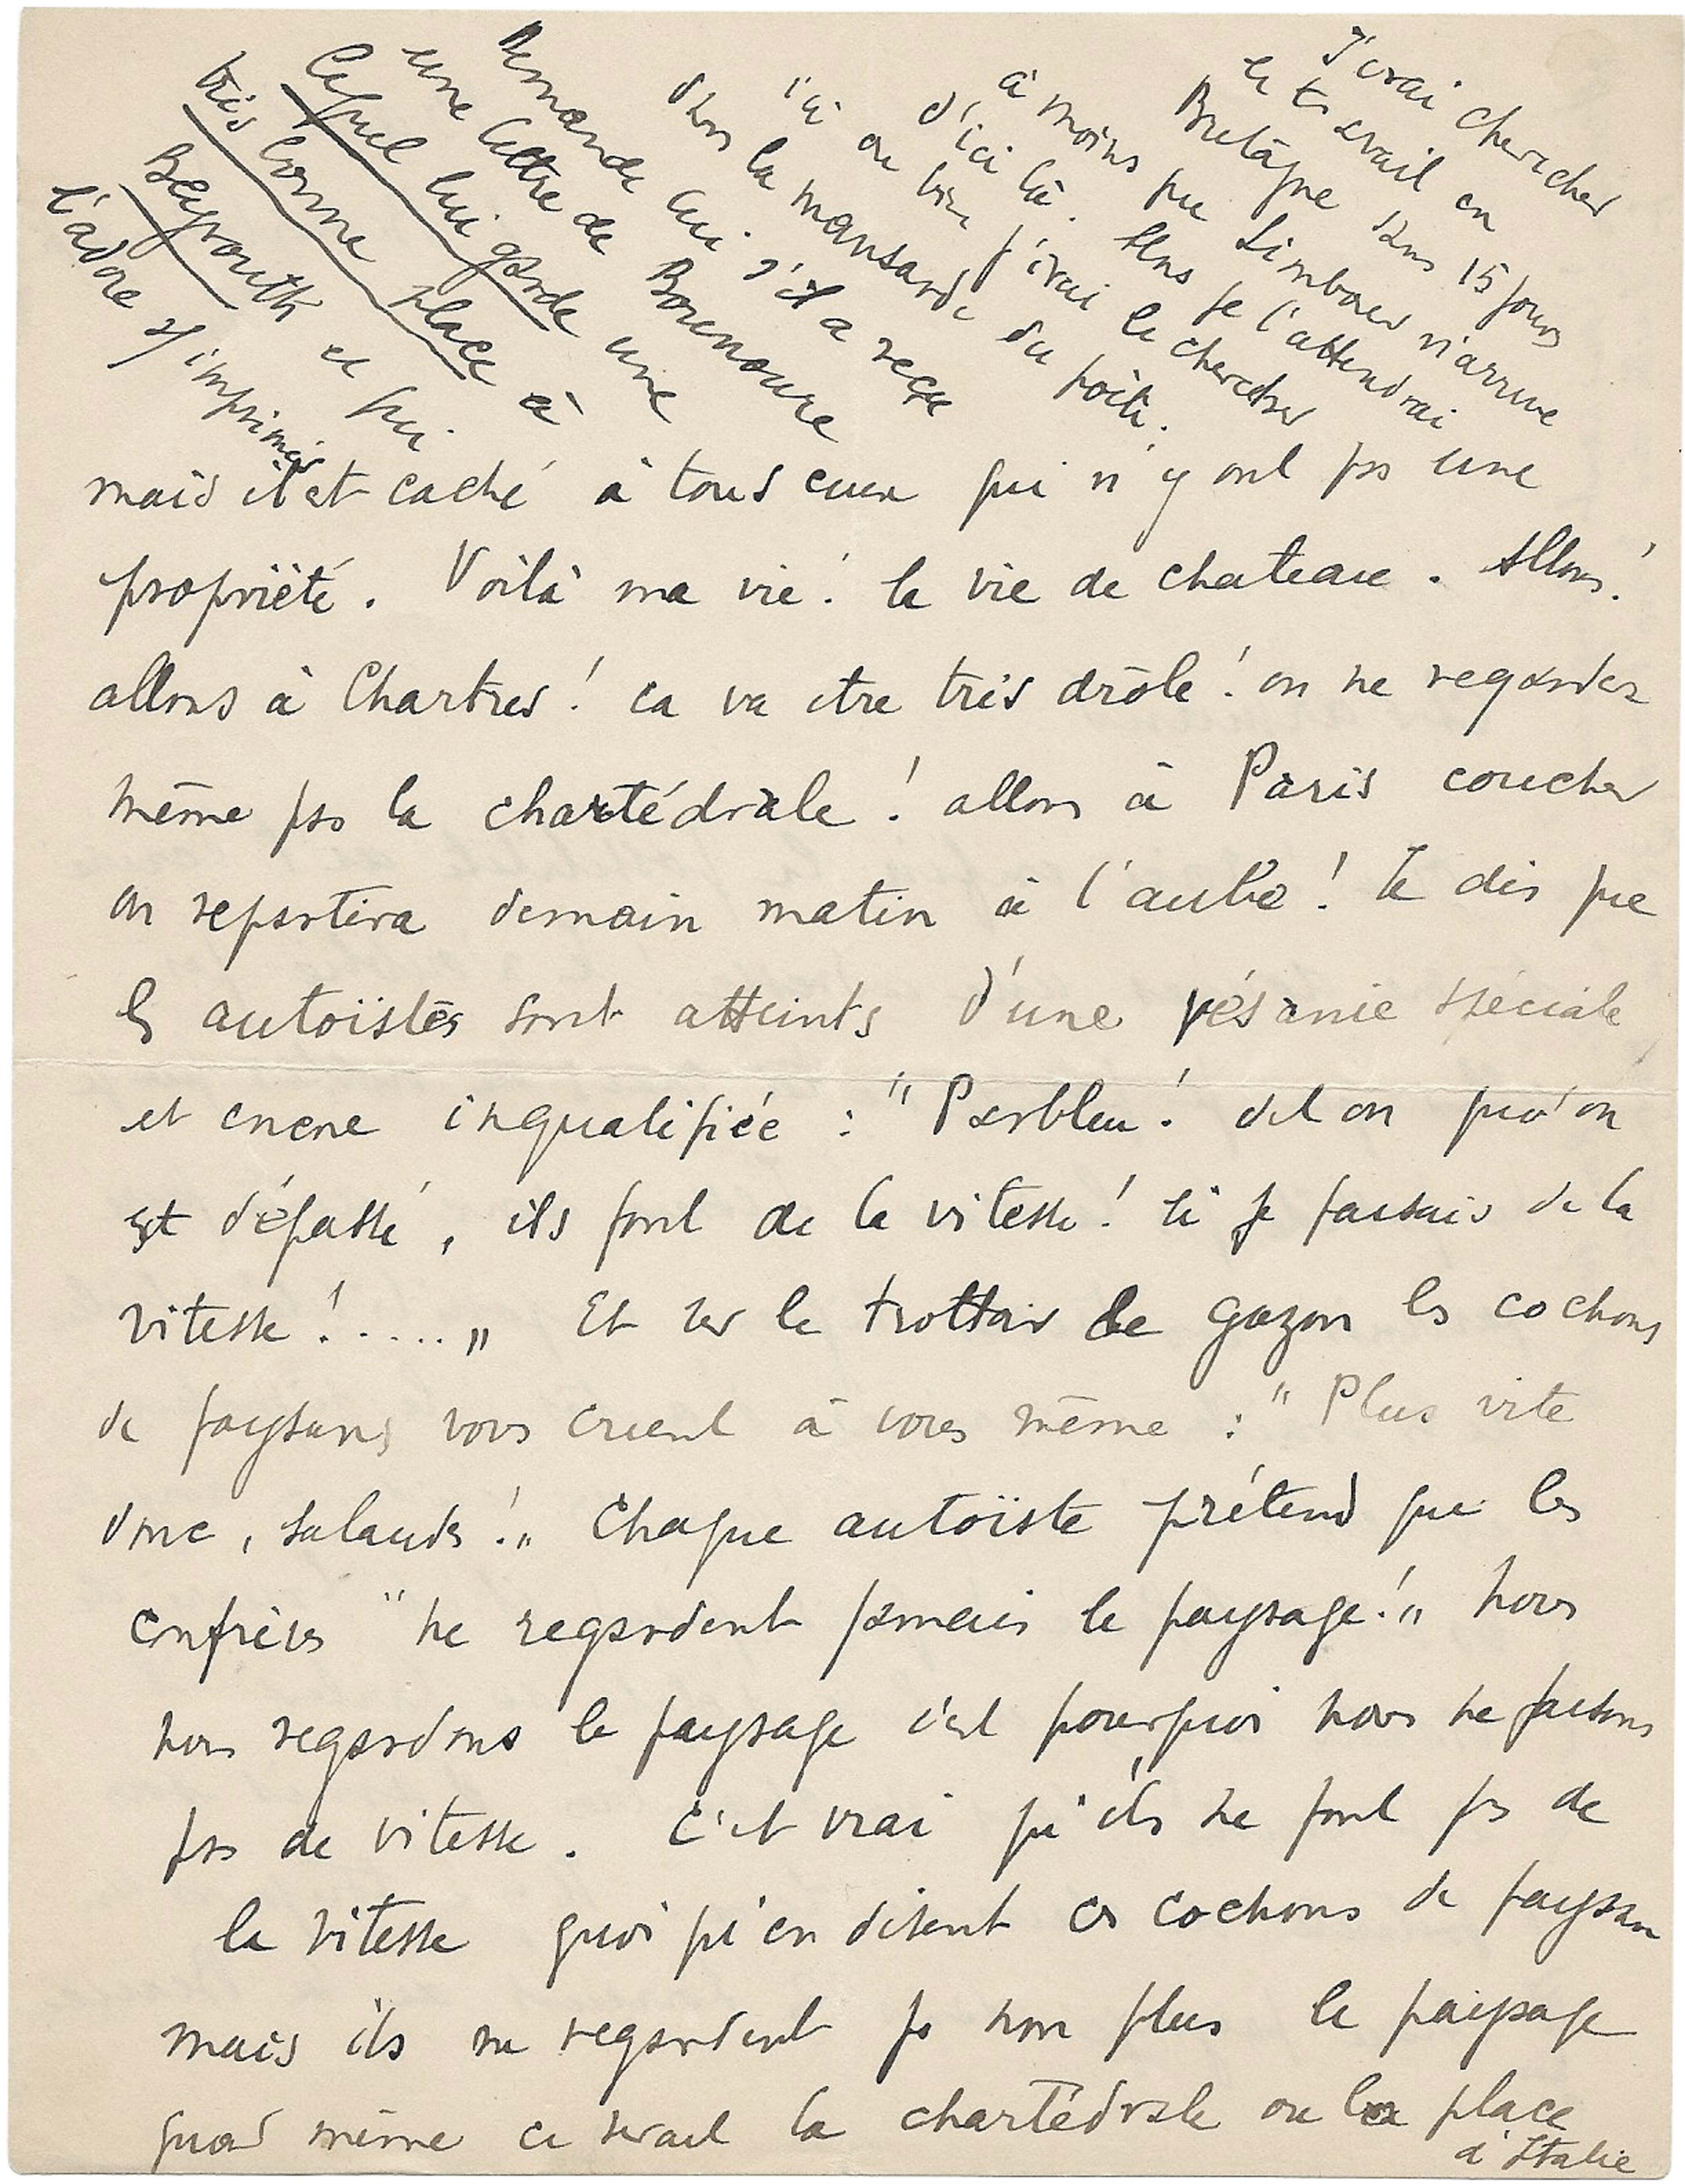 J'irai chercher
le travail en
Bretagne dans 15 jours
à moins que Limbour n'arrive
d'ici là. Alors je l'attendrai
ici ou bien j'irai le chercher
dans la mansarde du poète.
Demande lui s'il a reçu
une lettre de Bounoure
lequel lui garde une
très bonne place à
Beyrouth et qui
l'adore
mais il est caché à tous ceux qui n'y ont pas une
propriété. Voilà ma vie! la vie de chateau. Allons!
allons à Chartres! ca va etre très drôle! on ne regardera
même pas la chartédrale! allons à Paris coucher
on repartira demain matin à l'aube! Je dis que
les autoïstes sont atteints d'une vésanie spéciale
et encore inqualifiée : "Parbleu! dit on qu'on
est dépassé, ils font de la vitesse! si je faisais de la
vitesse!....." Et sur le trottoir de gazon les cochons
de paysans vous crient à vous même : "Plus vite
donc, salauds!" Chaque autoïste prétend que les
confrères "ne regardent jamais le paysage!" nous
nous regardons le paysage c'est pourquoi nous ne faisons
pas de vitesse. C'est vrai qu'ils ne font pas de
la vitesse quoi qu'en disent ces cochons de paysan
mais ils ne regardent pas non plus le paysage
quand même ce serait la chartédrale ou la place
d'Italie